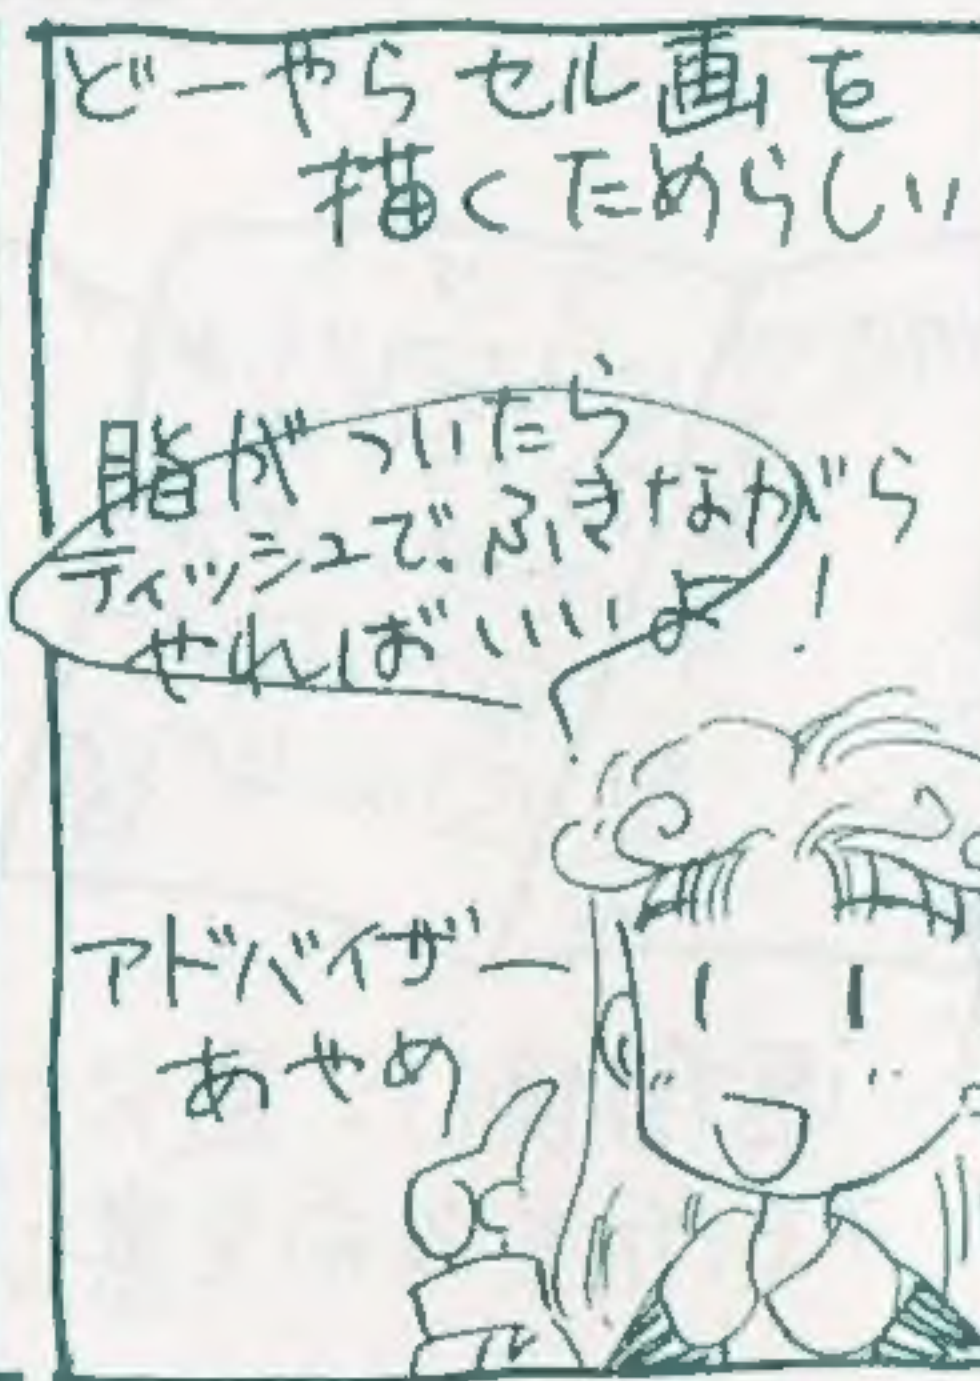 どーやらセル画を
描くためらしい
脂がついたら
ティッシュで、ふきながら
せればいいよ!
アドバイザー
あやめ